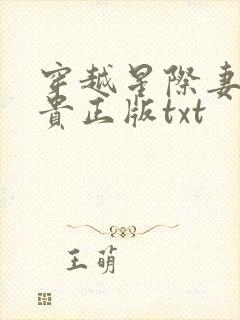 穿越星際妻
貴正版txt
王萌